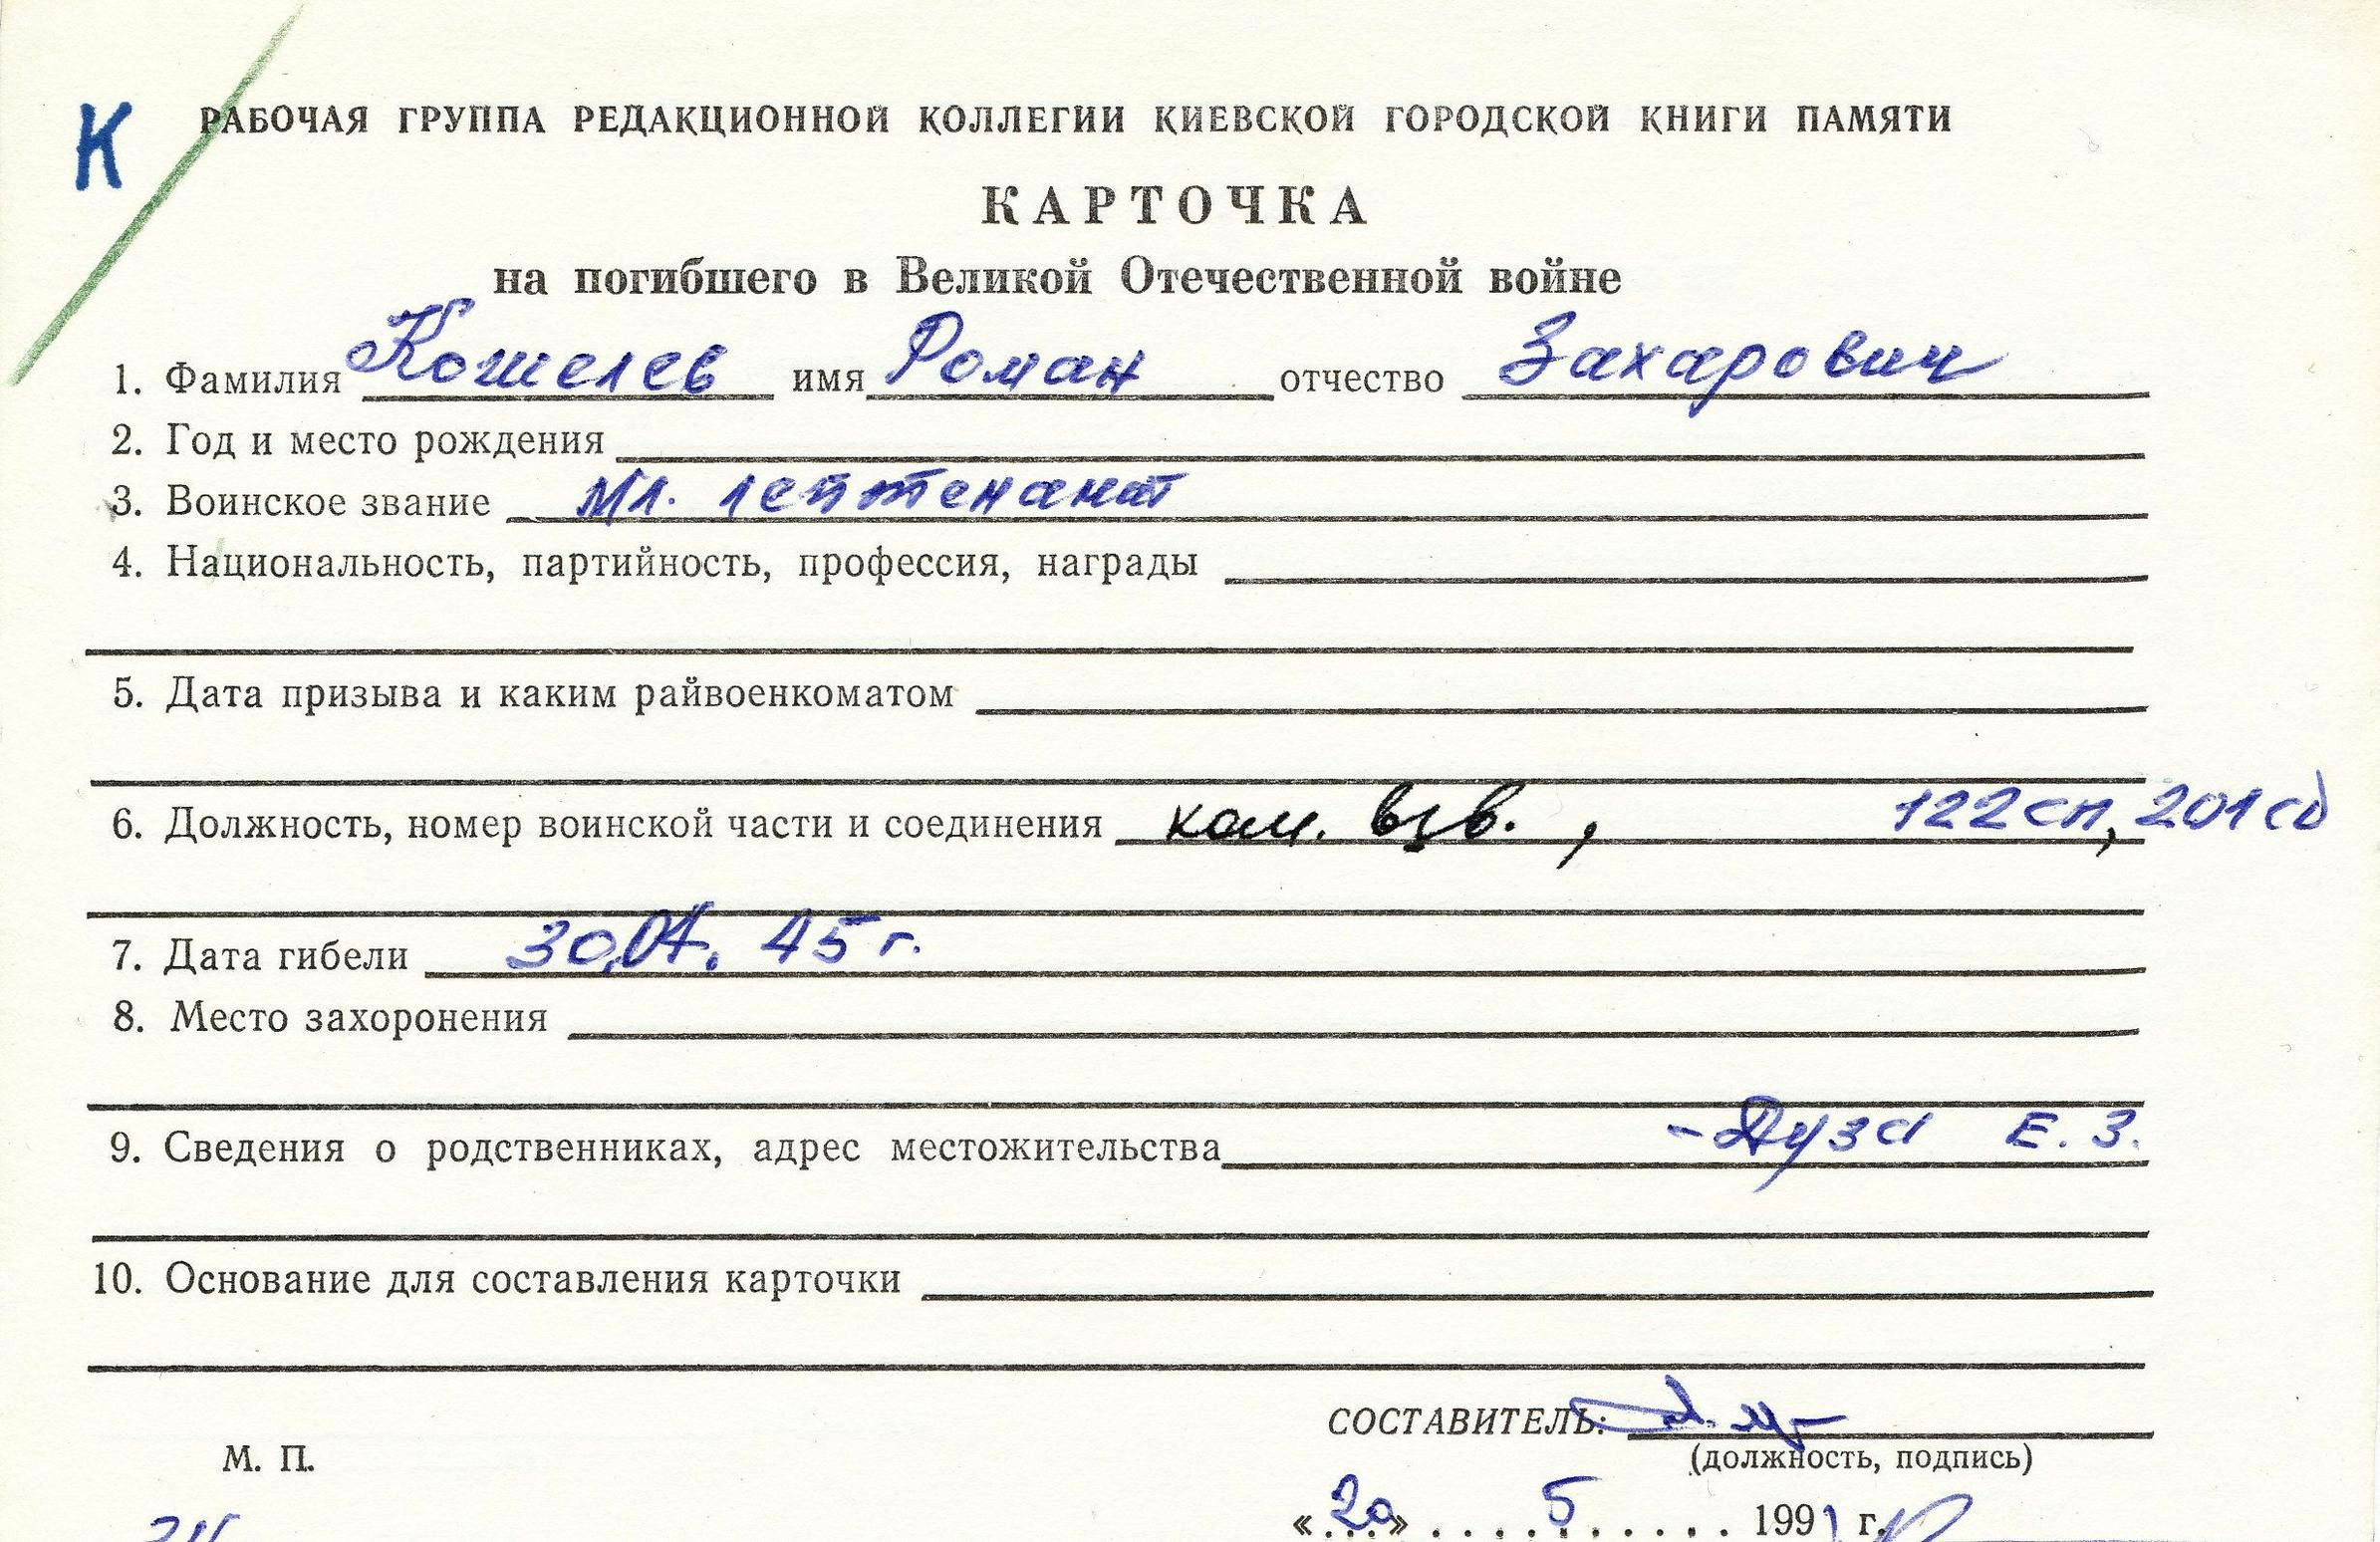 К
РАБОЧАЯ ГРУППА РЕДАКЦИОННОЙ КОЛЛЕГИИ КИЕВСКОЙ ГОРОДСКОЙ КНИГИ ПАМЯТИ
КАРТОЧКА
на погибшего в Великой Отечественной войне
1. Фамилия Кошелев имя Роман отчество Захарович
2. Год и место рождения
3. Воинское звание Мл. лейтенант
4. Национальность, партийность, профессия, награды
5. Дата призыва и каким райвоенкоматом
6. Должность, номер воинской части и соединения ком. взв., 122 сп, 201 сд
7. Дата гибели 45 г.
8. Место захоронения
9. Сведения о родственниках, адрес местожительства - Дуза Е. З.
10. Основание для составления карточки
СОСТАВИТЕЛЬ:
М. П.
(должность, подпись)
«20» 5 1991 г.